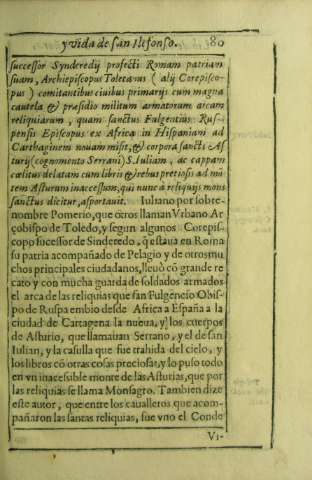 y vida de san Ilefonso. 80
successor Synderedij profecti Romam patriam
suam, Archiepiscopus Toletanus (alij Corepisco-
pus) comitantibus ciuibus primarijs cum magna
cautela & præsidio militum armatorum arcam
reliquiarum, quam sanctus Fulgentius Rus-
pensis Episcopus ex Africa in Hispaniam ad
Carthaginem nouam misit, & corpora sancti As
turij (cognomento Serrani) S. Iuliam, ac cappam
cælitus delatam cum libris & rebus pretiosis ad mõ
tem Asturum inaccessum, qui nunc à reliquijs mons
sanctus dicitur, asportauit. Iuliano por sobre-
nombre Pomerio, que otros llaman Vrbano Ar
çobispo de Toledo, y segun algunos Corepis-
copo sucessor de Sinderedo, q̃ estaua en Roma
su patria acompañado de Pelagio y de otros mu
chos principales ciudadanos, lleuò cõ grande re
cato y con mucha guarda de soldados armados
el arca de las reliquias que san Fulgencio Obis-
po de Ruspa embio desde Africa a España a la
ciudad de Cartagena la nueua, y los cuerpos
de Asturio, que llamauan Serrano, y el de san
Iulian, y la casulla que fue trahida del cielo, y
los libros cõ otras cosas preciosas, y lo puso todo
en vn inacessible monte de las Asturias, que por
las reliquias se llama Monsagro. Tambien dize
este autor, que entre los caualleros que acom-
pañaron las santas reliquias, fue vno el Conde
Vi-